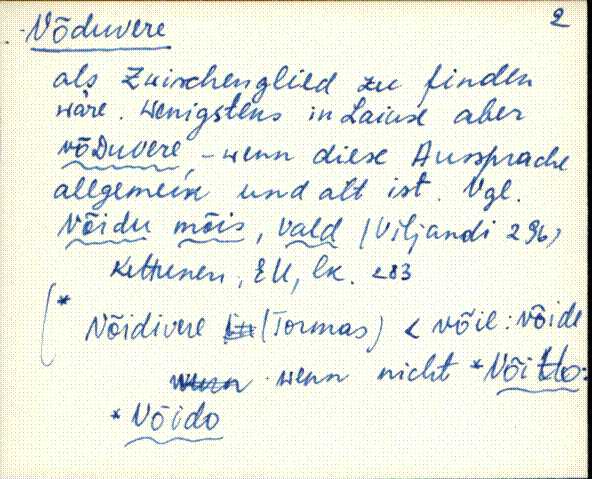 Võduvere 2
als Zwischenglied zu finden
wäre. Wenigstens in Laiuse aber
võDuvere, – wenn diese Aussprache
allgemein und alt ist. Vgl.
Võidu mõis, vald (Viljandi 296)
Kettunen, EU, lk. 283
* Võidivere (Tormas) < võie : võide
wenn nicht *Võitto:
*Võido